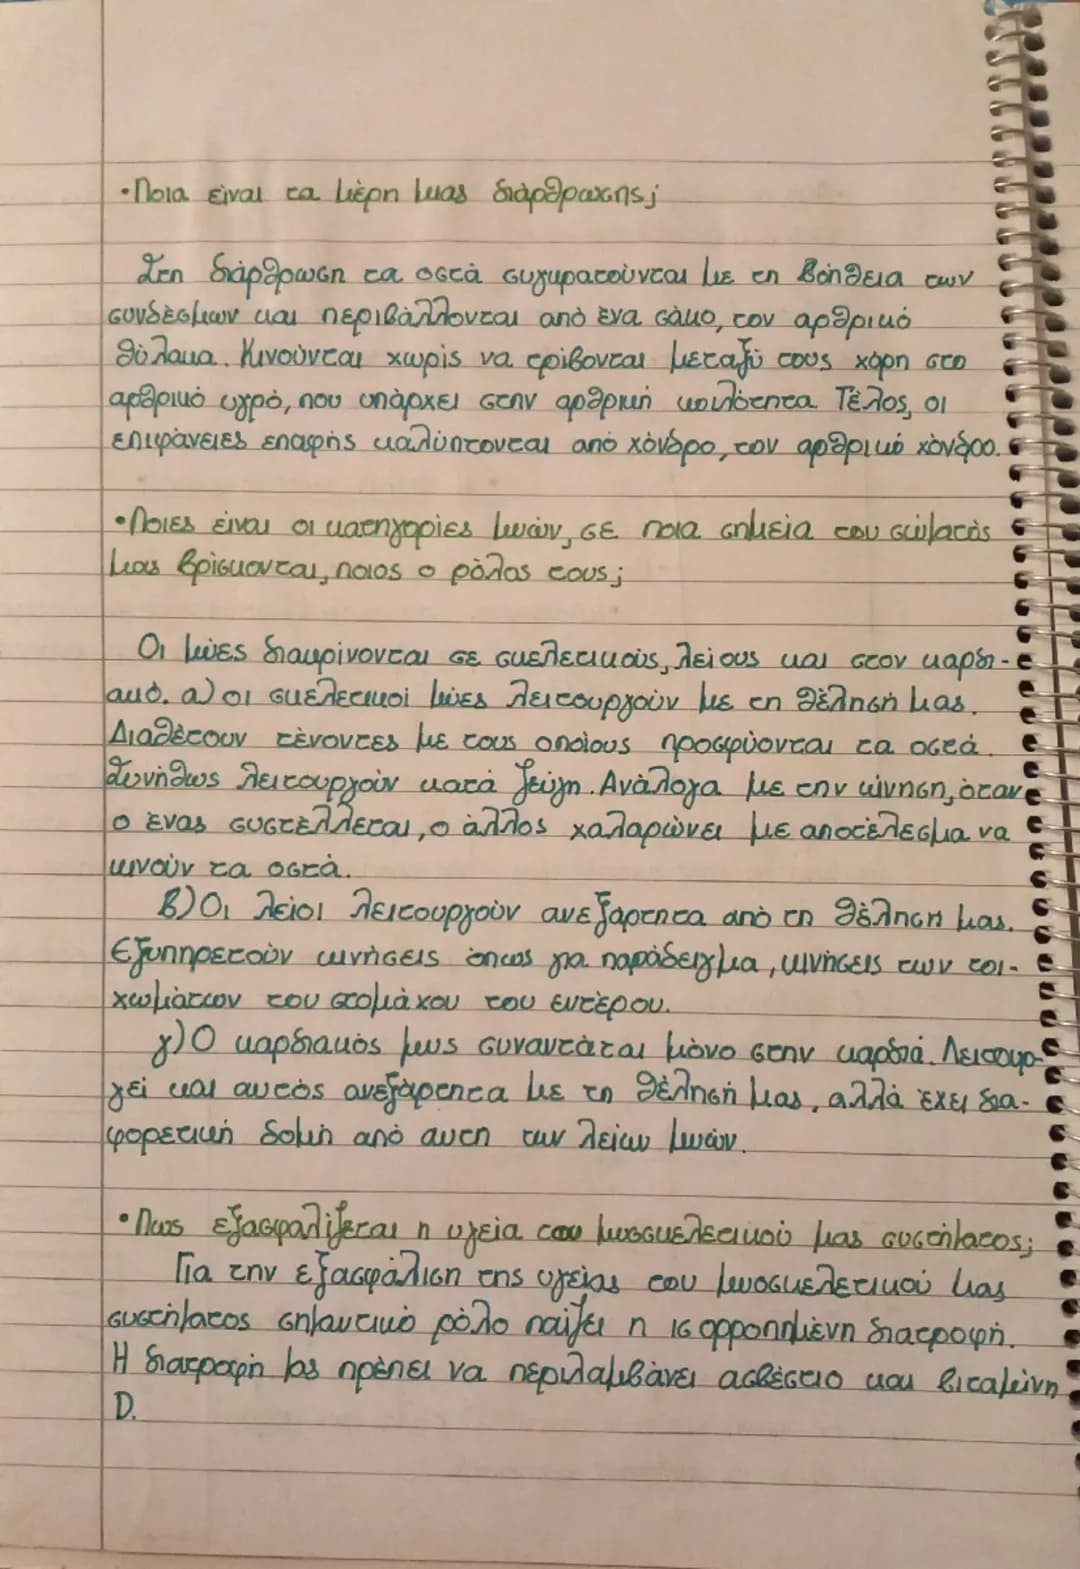 •Ποια είναι τα μέρη μιας διάρθρωσης;
Στη διάρθρωση τα οστά συγκρατούνται με τη βοήθεια των
συνδέσμων και περιβάλλονται από ένα σάκο, τον αρθρικό
θύλακα. Κινούνται χωρίς να τρίβονται μεταξύ τους χάρη στο
αρθρικό υγρό, που υπάρχει στην αρθρική κοιλότητα. Τέλος, οι
επιφάνειες επαφής καλύπτονται από χόνδρο, τον αρθρικό χόνδρο.
•Ποιες είναι οι κατηγορίες μυών, σε ποια σημεία του σώματός
μας βρίσκονται, ποιος ο ρόλος τους;
Οι μύες διακρίνονται σε σκελετικούς, λείους και στον καρδι-
ακό. α) οι σκελετικοί μύες λειτουργούν με τη θέλησή μας.
Διαθέτουν τένοντες με τους οποίους προσφύονται τα οστά.
Συνήθως λειτουργούν κατά ζεύγη. Ανάλογα με την κίνηση, όταν
ο ένας συστέλλεται, ο άλλος χαλαρώνει με αποτέλεσμα να
κινούν τα οστά.
β) Οι λείοι λειτουργούν ανεξάρτητα από τη θέληση μας.
Εξυπηρετούν κινήσεις όπως για παράδειγμα, κινήσεις των τοι-
χωμάτων του στομάχου του εντέρου.
γ) Ο καρδιακός μυς συναντάται μόνο στην καρδιά. Λειτουρ-
γεί και αυτός ανεξάρτητα με τη θέλησή μας, αλλά έχει δια-
φορετική δομή από αυτη των λείων μυών.
•Πως εξασφαλίζεται η υγεία του μυοσκελετικού μας συστήματος;
Για την εξασφάλιση της υγείας του μυοσκελετικού μας
συστήματος σημαντικό ρόλο παίζει η ισορροπημένη διατροφή.
Η διατροφή μας πρέπει να περιλαμβάνει ασβέστιο και βιταμίνη
D.